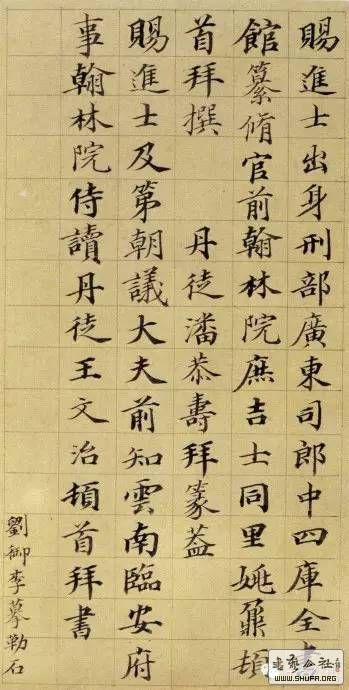 賜進士出身刑部廣東司郎中四庫全書
館纂脩官前翰林院庶吉士同里姚鼐頓
首拜撰 丹徒潘恭壽拜篆蓋
賜進士及第朝議大夫前知雲南臨安府
事翰林院侍讀丹徒王文治頓首拜書
劉御李摹勒石
WWW.SHUFA.ORG